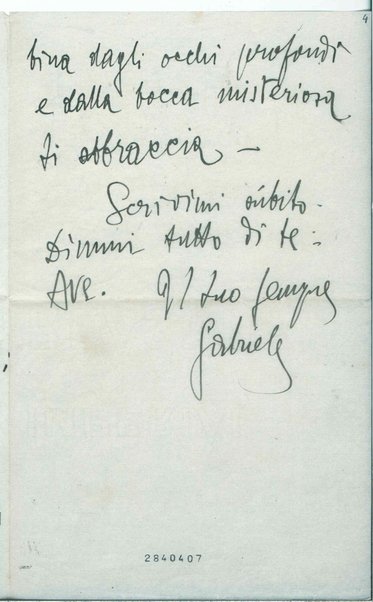 4
bina dagli occhi profondi
e dalla bocca misteriosa
ti abbraccia —
Scrivimi súbito.
Dimmi tutto di te.
Ave. Il tuo sempre
Gabriele
2840407